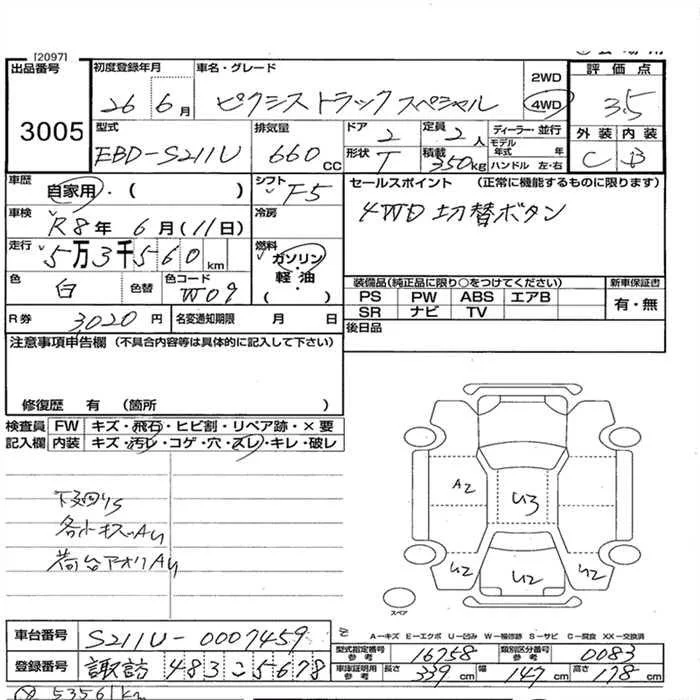 [2097]
出品番号 3005
初度登録年月 26 6月
車名・グレード ピクシストラックスペシャル
2WD
4WD
評価点 3.5
外装 内装
C B
型式 EBD-S211U
排気量 660 CC
ドア 2
定員 2人
ディーラー・並行
形状 T
積載 350kg
モデル年式 年
ハンドル 左・右
車歴 自家用・( )
シフト F5
車検 R8年 6月(11日)
冷房
走行 5万3千560km
燃料 ガソリン・軽油 ( )
色 白
色替
色コード W09
R券 3,020円
名変通知期限 月 日
セールスポイント (正常に機能するものに限ります)
4WD切替ボタン
装備品(純正品に限り○をつけてください)
PS PW ABS エアB
SR ナビ TV
新車保証書
有・無
後日品
注意事項申告欄 (不具合内容等は具体的に記入して下さい)
修復歴 有 (箇所 )
検査員記入欄
FW キズ・飛石・ヒビ割・リペア跡・×要
内装 キズ・汚レ・コゲ・穴・スレ・キレ・破レ
下廻りS
各小キズ~AU
荷台アオリAU
A2
U3
U2
U2
U2
スペア
A-キズ E-エクボ U-凹み W-補修跡 S-サビ C-腐食 XX-交換済
車台番号 S211U-0007459
登録番号 諏訪 483 こ 5678
型式指定番号 参考 16758
類別区分番号 参考 0083
車庫証明用 参考 長さ 339cm 幅 147cm 高さ 178cm
53561km